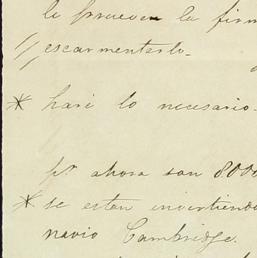 le prueven la firm
escarmentarlo.
hare lo necesario.
pr ahora son 8000
se estan invirtiendo
navio Cambridge.